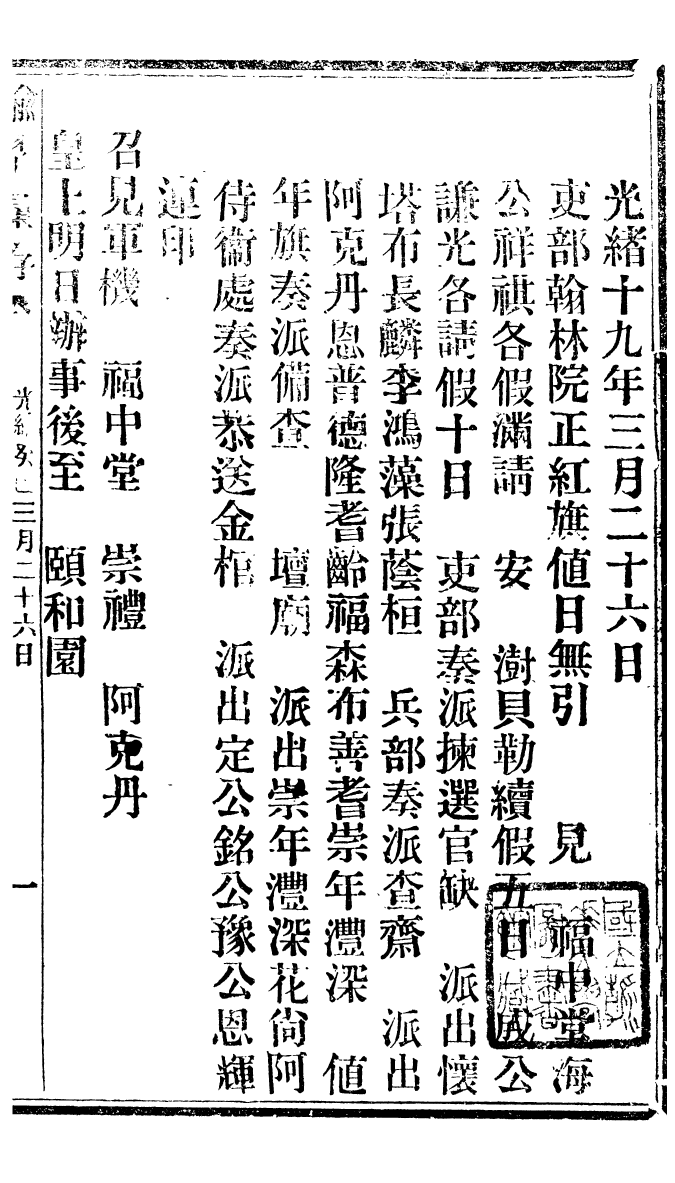 光緒十九年三月二十六日
吏部翰林院正紅旗値日無引　見　福中堂海
公祥祺各假滿請　安　澍貝勒續假五日　成公
謙光各請假十日　吏部奏派揀選官缺　派出懷
塔布長麟李鴻藻張蔭桓　兵部奏派查齋　派出
阿克丹恩普德隆耆齡福森布善耆崇年灃深　値
年旗奏派備查　壇廟　派出崇年灃深花尙阿
侍衞處奏派恭送金棺　派出定公銘公豫公恩輝
連印
召見軍機　福中堂　崇禮　阿克丹
皇上明日辦事後至　頤和園
諭摺彙存
三月二十六日
一